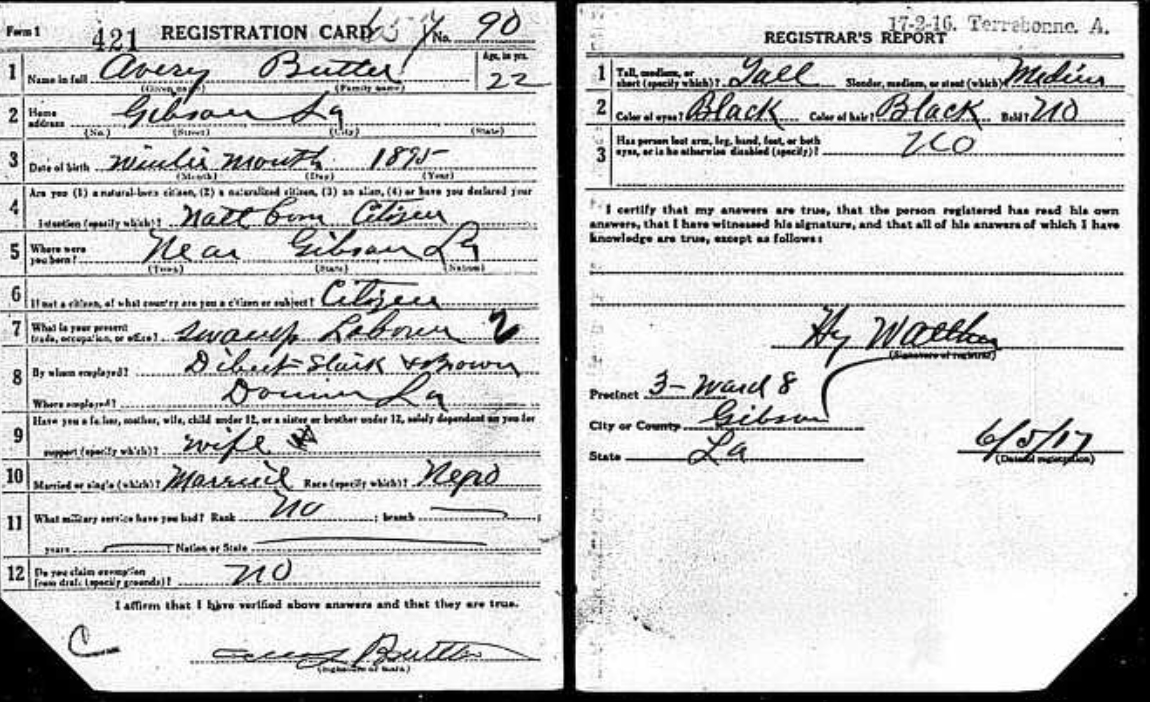 Form 1
421 REGISTRATION CARD No. 90
1 Name in full Avery Butler Age, in yrs. 22
(Given name) (Family name)
2 Home address Gibson La
(No.) (Street) (City) (State)
3 Date of birth Winter Month 1895
(Month) (Day) (Year)
Are you (1) a natural-born citizen, (2) a naturalized citizen, (3) an alien, (4) or have you declared your
4 intention (specify which)? Natl born Citizen
5 Where were you born? Near Gibson La
(Town) (State) (Nation)
6 If not a citizen, of what country are you a citizen or subject? Citizen
7 What is your present trade, occupation, or office? Swamp Laborer 2
8 By whom employed? Dibert Stark & Brown
Where employed? Donner La
Have you a father, mother, wife, child under 12, or a sister or brother under 12, solely dependent on you for
9 support (specify which)? wife
10 Married or single (which)? Married Race (specify which)? Negro
11 What military service have you had? Rank No ; branch ;
years ; Nation or State
12 Do you claim exemption from draft (specify grounds)? No
I affirm that I have verified above answers and that they are true.
C
Avery Butler
(Signature or mark)
17-2-16. Terrebonne. A.
REGISTRAR'S REPORT
1 Tall, medium, or short (specify which)? Tall Slender, medium, or stout (which)? Medium
2 Color of eyes? Black Color of hair? Black Bald? No
3 Has person lost arm, leg, hand, foot, or both eyes, or is he otherwise disabled (specify)? No
I certify that my answers are true, that the person registered has read his own
answers, that I have witnessed his signature, and that all of his answers of which I have
knowledge are true, except as follows:
Hy Walther
(Signature of registrar)
Precinct 3-Ward 8
City or County Gibson
State La
6/5/17
(Date of registration)